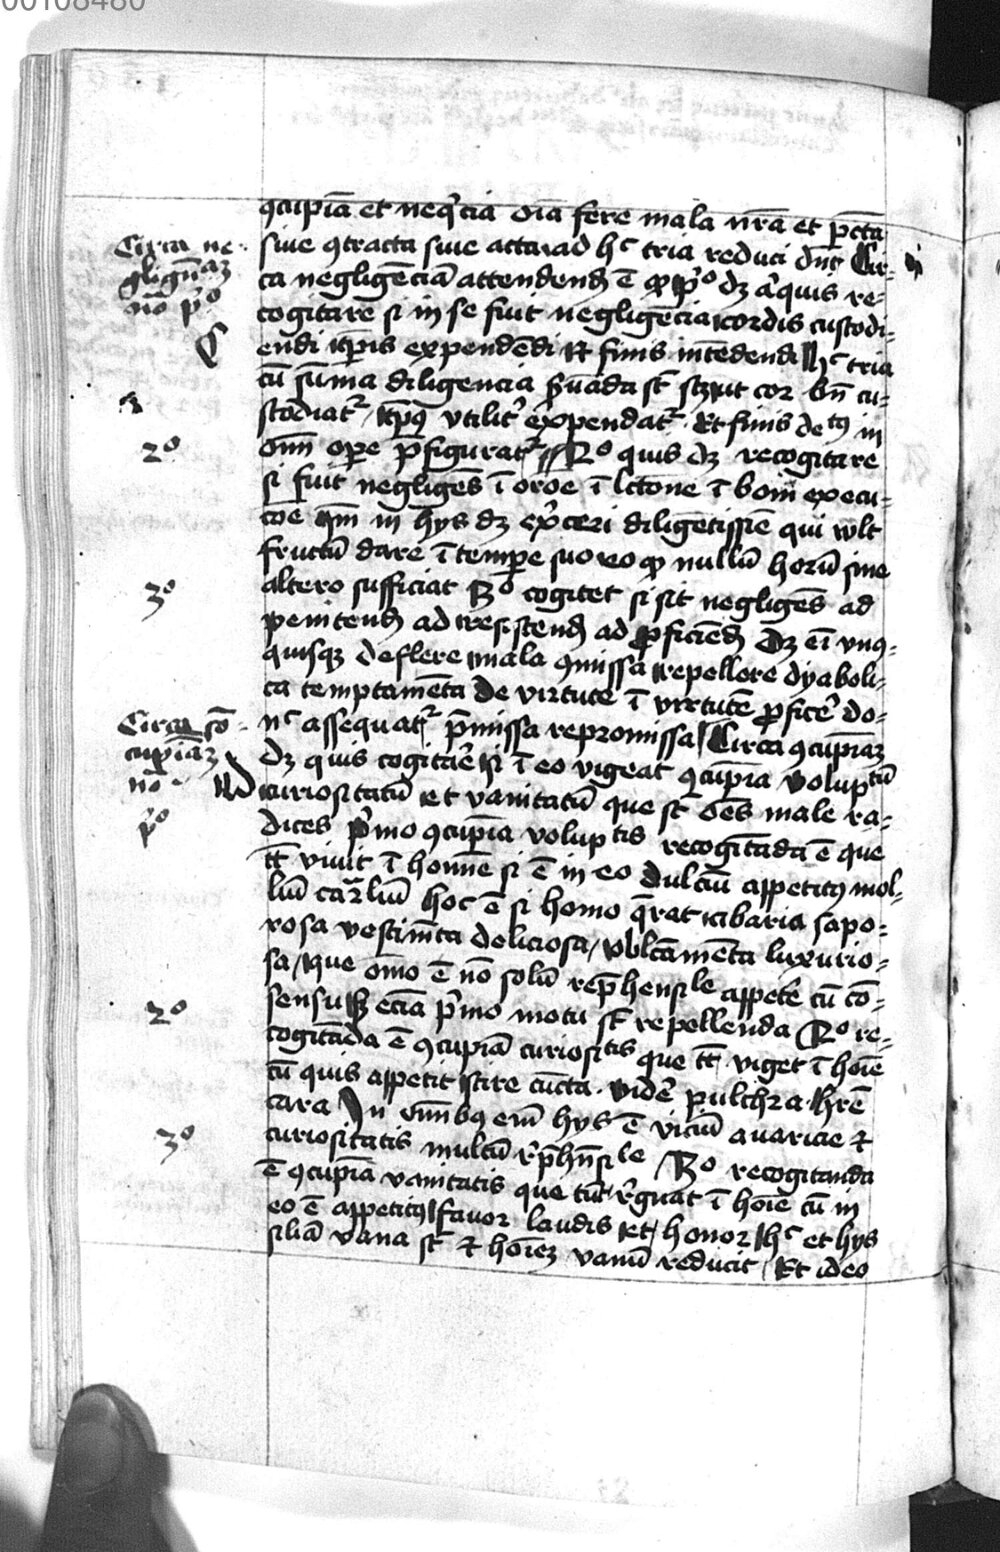 00108480
ꝯcupi͞a et neq̇cia o͞ia fere mala nr̄a et pc̄cta
siue ꝯtracta siue acta ad hᶜ tria reduci dn̄t Cir-
ca negligēcia͞ attendend̄ ē ꝙ p̊º dꝫ a̍quis re-
cogitare si in se fuit negligēcia cordis custodi-
endi tp̄is expendēdi ⁊ finis intēdendi hᶜ tria
cū sūma diligencia ẜuāda st̄ scꝫ ut cor bn̄ cu-
stodiatᷣ tp̄us vtilit̉ expendatᷣ Et finis de᷑tꝰ in
om̄i oꝑe p̄figuratᷣ // 2º quis dꝫ recogitare
si fuit negligēs ī orōe ī lc̄tōne ī boni execu-
cōe qm̄ in hys dꝫ ex̉ceri diligētissīe qui wlt
fructū dare ī temꝑe suo eo ꝙ nullū horū sine
altero sufficiat 3º cogitet si sit negligēs ad
penitend̄ ad resistend̄ ad ꝓficiēd̄ dꝫ eī vnꝰ-
quisqꝫ deflere mala ꝯmissa repellere dyaboli-
ca temptamēta de virtute ī virtutē ꝓficē do-
nᶜ assequatᷣ p̄missa repromissa Circa ꝯcupīaꝫ
dꝫ quis cogitāe si ī eo vigeat ꝯcupīa voluptū
curiositatū et vanitatū que st̄ oēs male ra-
dices p̍mo ꝯcupīa voluptis recogitāda ē que
tc̄ viuit ī homīe si ē in eo dulciū appetitꝰ mol-
liū carᷓliū hoc ē si homo q̄rat cibaria sapo-
rosa vestimēta deliciosa / oblcāmēta luxurio-
sa / que omo ē nō solū rep̄hensiˡᵉ appetē cū cō-
sensu sꝫ eciā p̍mo motu st̄ repellenda 2º re-
cogitāda ē ꝯcupīa curiositis que tc̄ viget ī hoīe
cū quis appetit scire cūcta vidē pulchra hr̄e
cara In om̄ibꝰ em̄ hys ē viciū auaricie ⁊
curiositatis multū rp̄hn̄siˡᵉ 3º recogitanda
ē ꝯcupīa vanitatis que tūc regnat ī hoīe cū in
eo ē appetitꝰ fauor laudis et honor hᶜ et hys
siliā vana st̄ ⁊ hoīeꝫ vanū reducit / Et ideo
Circa ne-
gligen̄aꝫ
nō p̊º
2º
3º
Circa cō-
cupīaꝫ
nō
p̊º
2º
3º